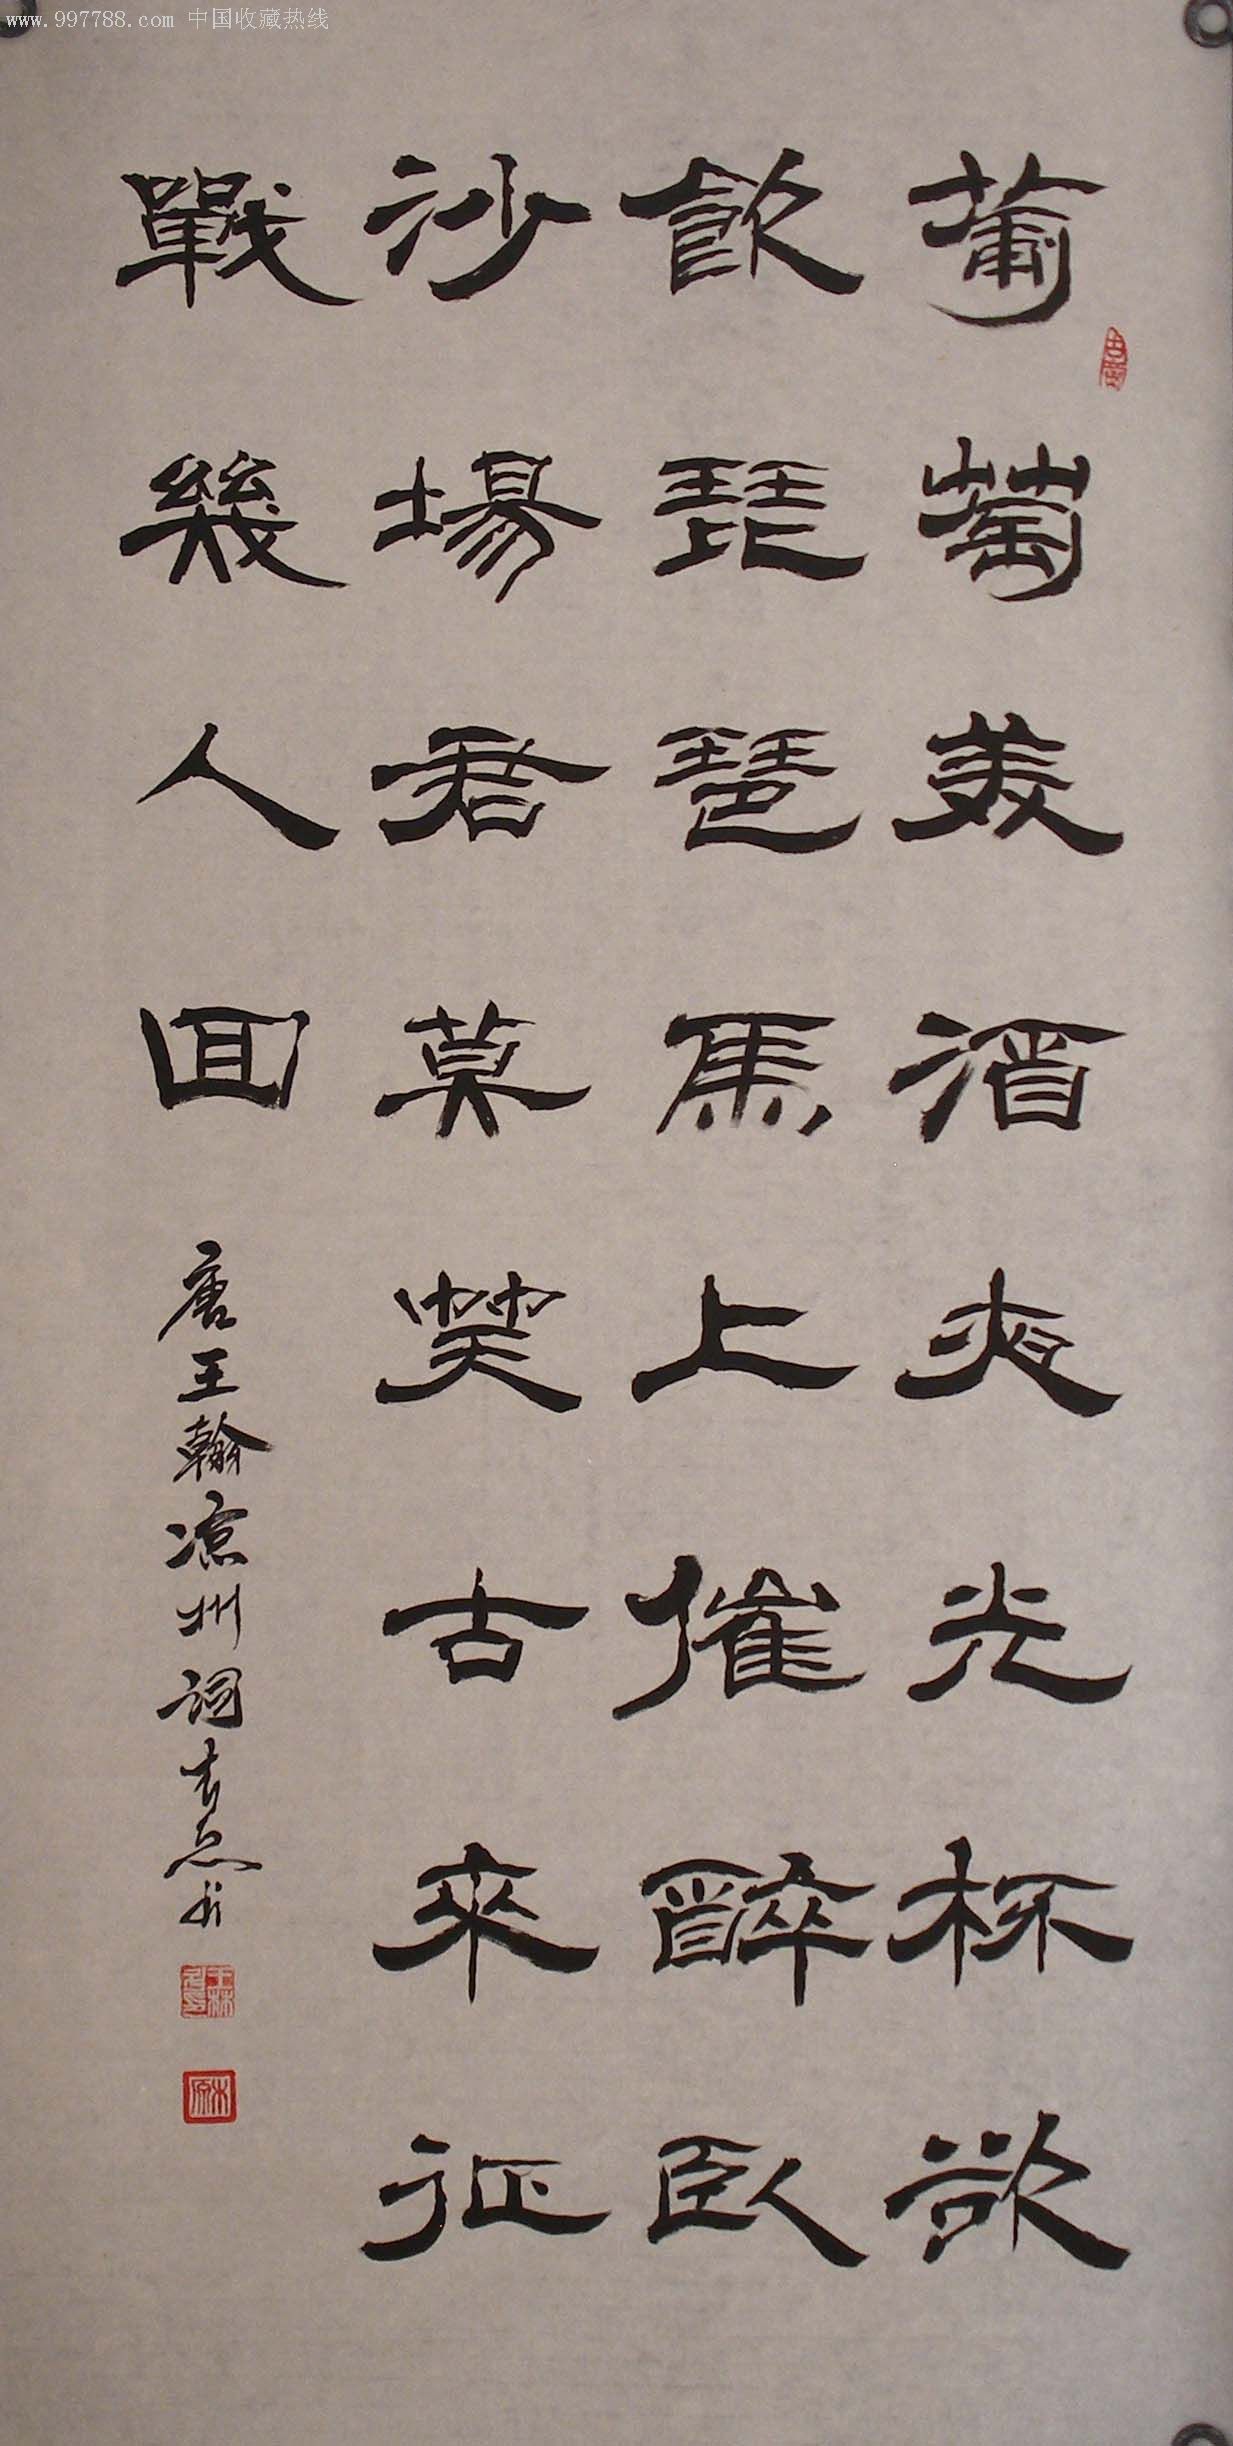 www.997788.com 中国收藏热线
葡萄美酒夜光杯欲
飲琵琶馬上催醉臥
沙場君莫笑古來征
戰幾人回
唐王翰凉州词